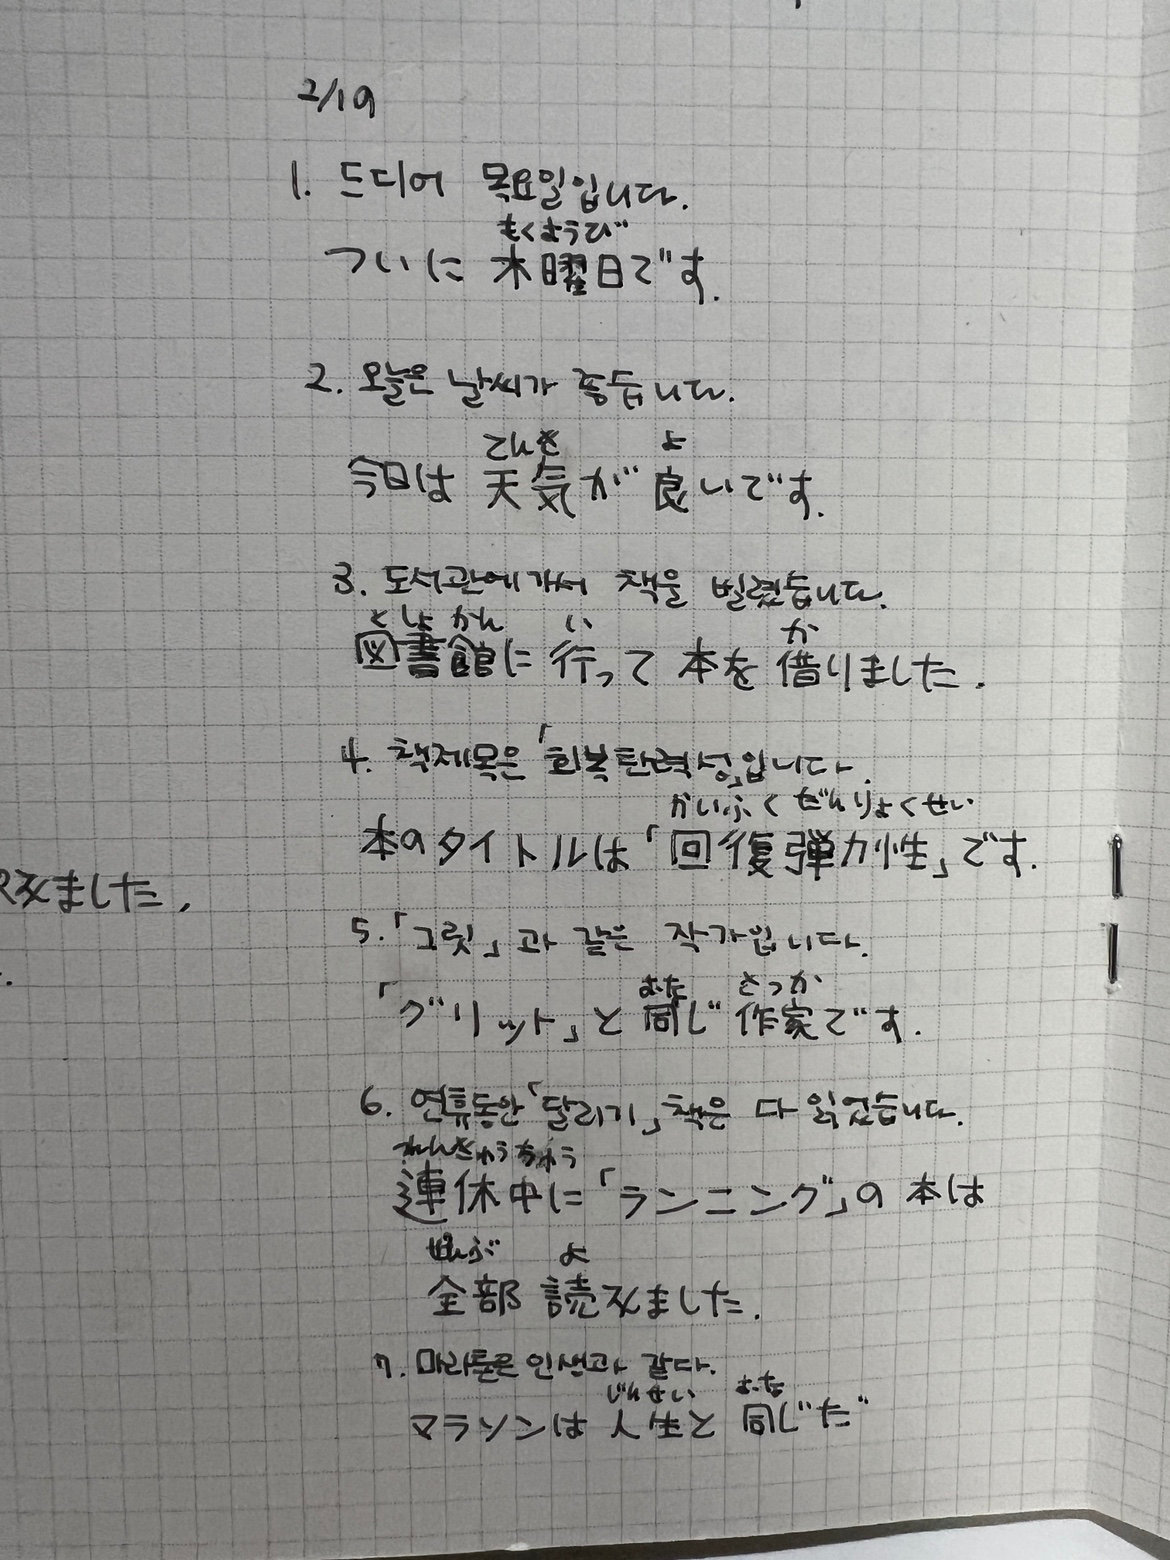 2/19
1. 드디어 목요일입니다.
もくようび
ついに 木曜日です.
2. 오늘은 날씨가 좋습니다.
てんき よ
今日は 天気が 良いです.
3. 도서관에 가서 책을 빌렸습니다.
としょかん い か
図書館に 行って 本を 借りました.
4. 책제목은「회복탄력성」입니다.
かいふく だんりょくせい
本のタイトルは「回復弾力性」です.
みました.
5.「그릿」과 같은 작가입니다.
おな さっか
「グリット」と 同じ 作家です.
6. 연휴동안「달리기」책은 다 읽었습니다.
れんきゅうちゅう
連休中に「ランニング」の 本は
ぜんぶ よ
全部 読みました.
7. 마라톤은 인생과 같다.
じんせい おな
マラソンは 人生と 同じだ